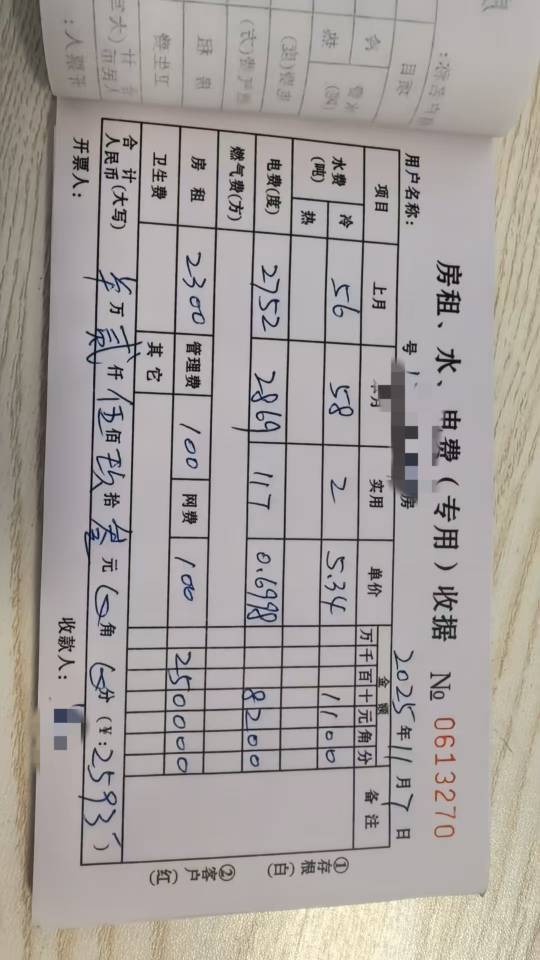 房租、水、电费（专用）收据 № 0613270
用户名称： 号 房 2025年11月7日
项目 上月 本月 实用 单价 金额 备注
万 千 百 十 元 角 分
水费(吨) 冷 56 58 2 5.34 1100
热
电费(度) 2752 2869 117 0.6998 8200
燃气费(方)
房租 2300 管理费 100 网费 100 250000
卫生费 其它
合计 人民币(大写) 万 贰 仟 伍 佰 玖 拾 叁 元 角 分 (￥: 2593 )
开票人： 收款人：
①存根(白) ②客户(红)